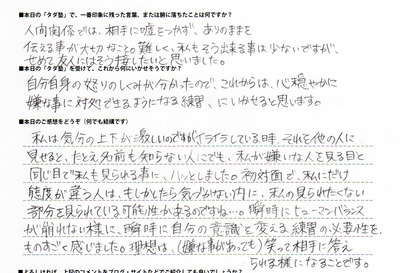 ■本日の「タダ塾」で、一番印象に残った言葉、または腑に落ちたことは何ですか?
人間関係では、相手に嘘をつかず、ありのままを
伝える事が大切なこと。難しく、私もそう出来る事は少ないですが、
せめて友人にはそう接したいと思いました。
■本日の「タダ塾」を受けて、これから何にいかせそうですか?
自分自身の怒りのしくみが分かったので、これからは、心穏やかに
嫌な事に対処できるようになる練習、にいかせると思います。
■本日のご感想をどうぞ(何でも結構です)
私は気分の上下が激しいのですがイライラしている時、それを他の人に
見せると、たとえ名前も知らない人にでも、私が嫌いな人を見る目と
同じ目で私も見られる事に、ハッとしました。初対面で、私にだけ
態度が違う人は、もしかしたら気づかない内に、私の見られたくない
部分を見られている可能性があるのですね…。瞬時にヒューマンバランス
が崩れない様に、瞬時に自分の意識と変える練習の必要性を、
ものすごく感じました。理想は、(嫌な事があっても)笑って相手に答え
られる様になることです。
■よろしければ、上記のコメントをブログ・サイトなどでご紹介しても良いでしょうか?